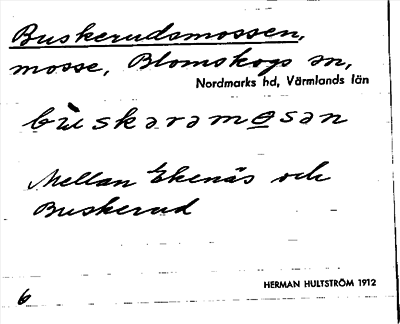 Buskerudsmossen,
mosse, Blomskogs sn,
Nordmarks hd, Värmlands län
bùskəraməsən
Mellan Ekenäs och
Buskerud
HERMAN HULTSTRÖM 1912
6